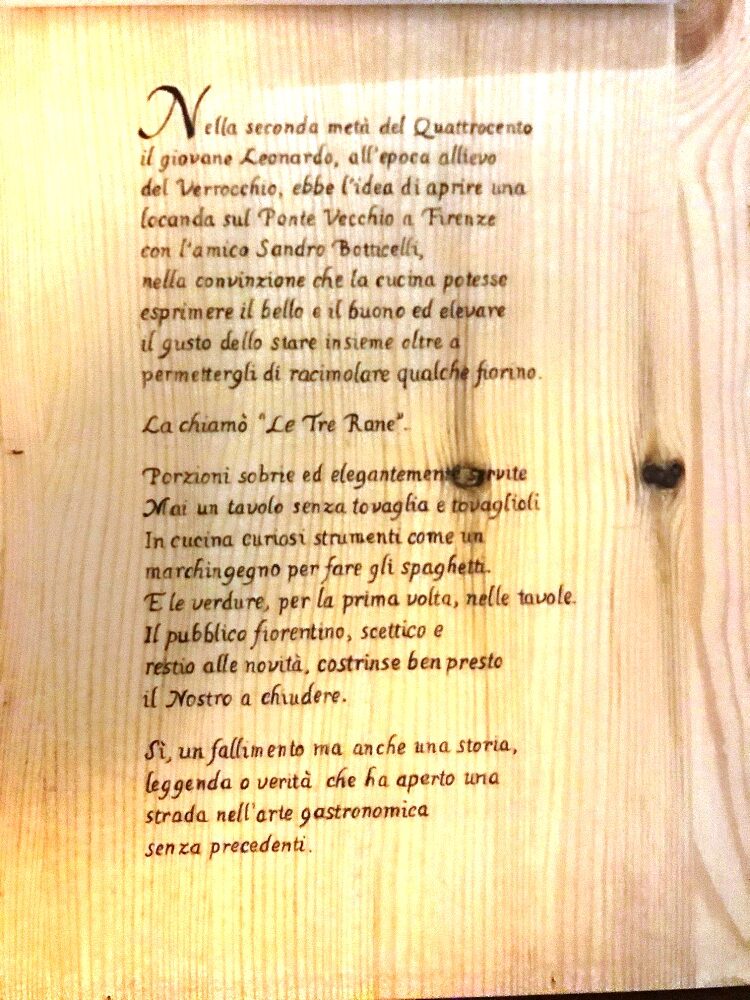 Nella seconda metà del Quattrocento
il giovane Leonardo, all'epoca allievo
del Verrocchio, ebbe l'idea di aprire una
locanda sul Ponte Vecchio a Firenze
con l'amico Sandro Botticelli,
nella convinzione che la cucina potesse
esprimere il bello e il buono ed elevare
il gusto dello stare insieme oltre a
permettergli di racimolare qualche fiorino.
La chiamò "Le Tre Rane".
Porzioni sobrie ed elegantemente servite
Mai un tavolo senza tovaglia e tovaglioli
In cucina curiosi strumenti come un
marchingegno per fare gli spaghetti.
E le verdure, per la prima volta, nelle tavole.
Il pubblico fiorentino, scettico e
restio alle novità, costrinse ben presto
il Nostro a chiudere.
Sì, un fallimento ma anche una storia,
leggenda o verità che ha aperto una
strada nell'arte gastronomica
senza precedenti.